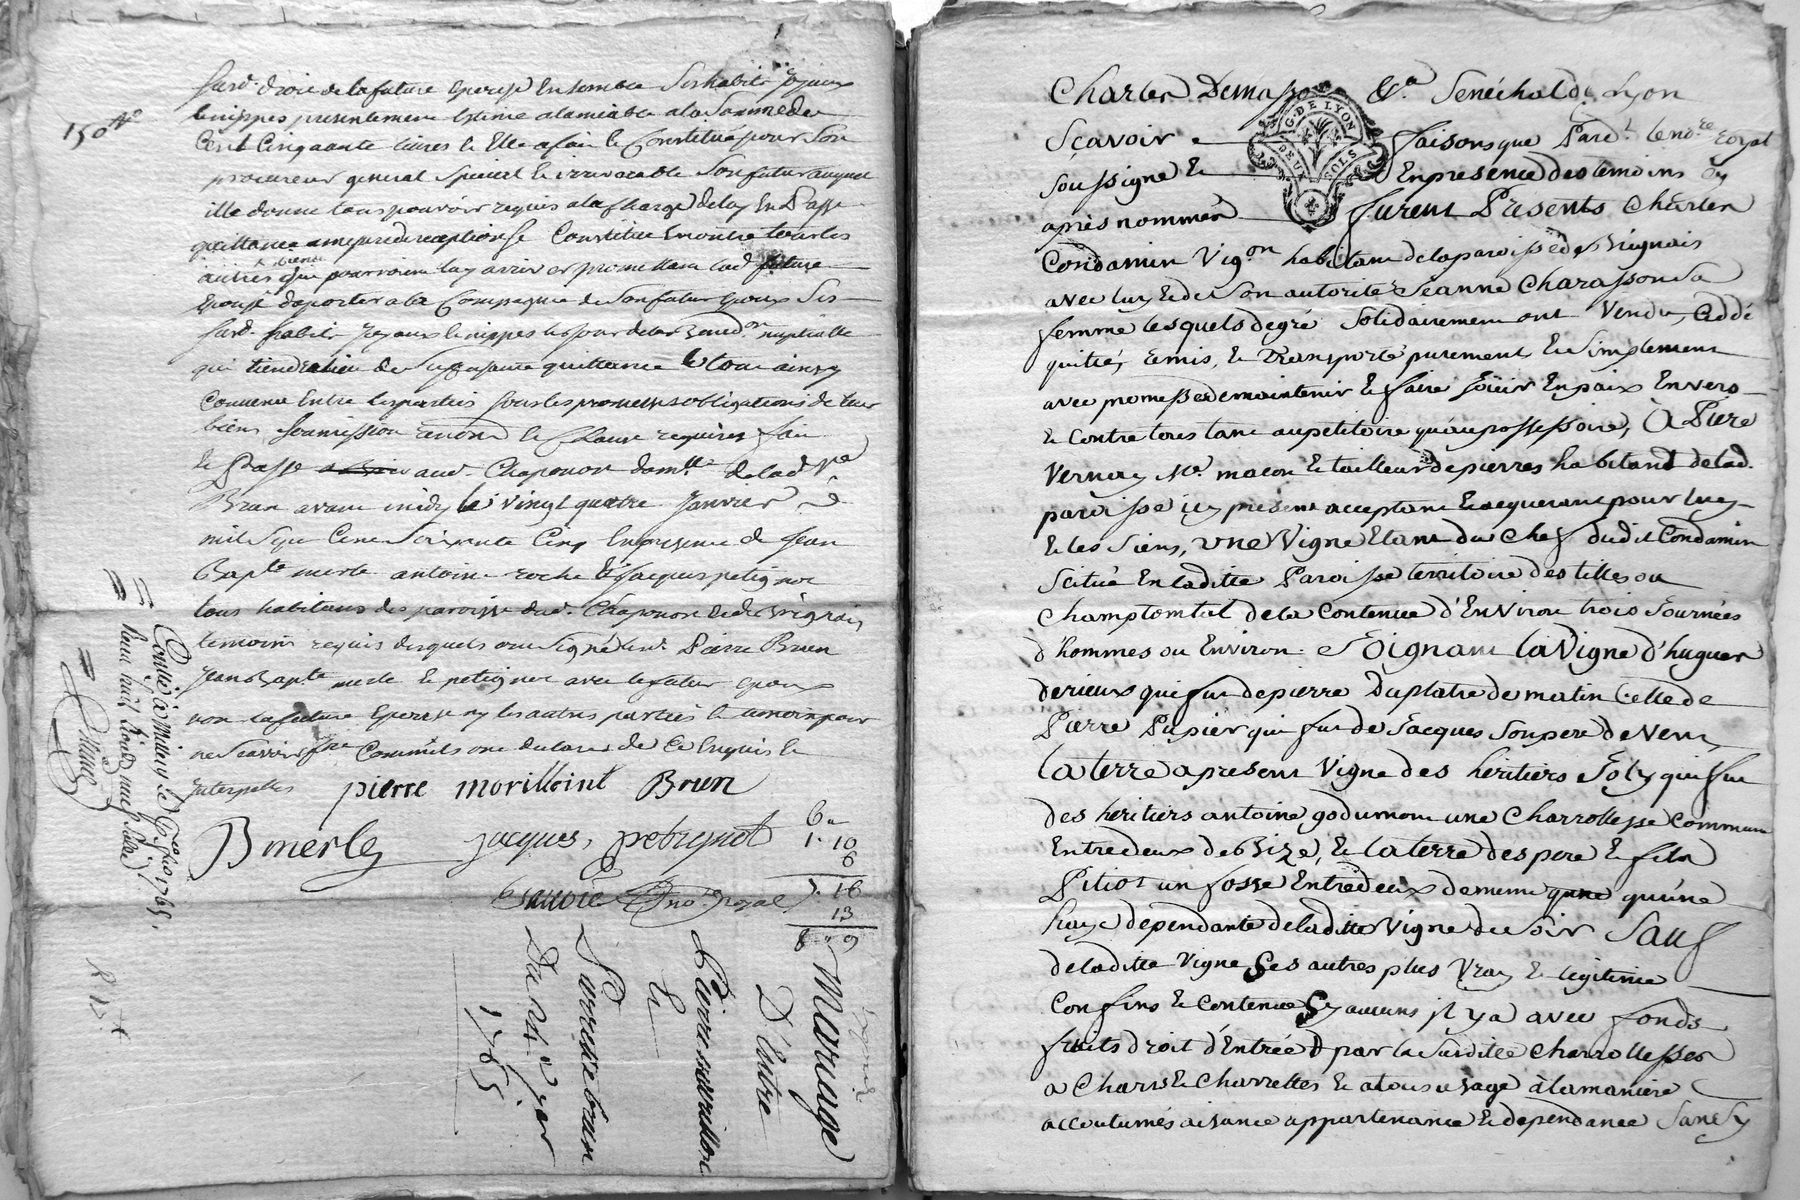 150
susd. droit de la future Epouse Ensemble Ses habits Joyaux
& nippes presentement Estimé alamiable ala Somme de
Cent Cinquante livres & Elle a fait & Constitué pour Son
procureur general Special & irrevocable Son futur auquel
Elle donne tous pouvoir requis a la Charge de luy En Passer
quittance amesure de reception Se Constitue En outre tous les
autres biens
que pourroient luy arriver promettant lad. future
Epouse d'aporter a la Compagnie de Son futur Epoux Ses
susd. habits Joyaux & nippes le Jour de la Bened.on nuptialle
qui tiendra lieu de Suffisante quittance & tout ainsy
Convenu Entre les parties sous les promesses obligations de leur
biens Soumission renon & Clause requises fait
& Passé aud. Chaponost dans de lad. Ve
Brun avant midy le vingt quatre Janvier
mil Sept Cent Soixante Cinq En presence de Jean
Bapte merle antoine roche & Jacques petignot
tous habitans des paroisse dud. Chaponost & de Brignais
temoins requis desquels ont Signé Pierre Brun
Jean Bapte merle & petignot avec le futur epoux
non la future Epouse ny les autres parties & temoin pour
ne Scavoir Comm'ils ont declaré de Ce Enquis &
Interpellés pierre morillioint Brun
B merle jacques petignot
no. royal
6
1. 10
6
7. 16
13
8 " 9
Conllé à Millery Le 1765,
Mariage
D'Entre
Pierre morillon
&
Pierrette brun
Du 24e Jer
1765
Charles Demasso &a Senéchal de Lyon
G. DE LYON
DEUX SOLS
Scavoir faisons que Pard.t le no.re royal
Soussigné & En presence des temoins Cy
après nommés furent Présents Charles
Condamin Vig.on habitant de la paroisse de Brignais
avec luy & de Son autorité Jeanne Charasson Sa
femme lesquels de gré Solidairement ont Vendu, Cédé
quitté, remis, & Transporté purement & Simplement
avec promesse de maintenir & faire Joüir En paix Envers
& Contre tous tant au petitoire qu'au possessoire, à Piere
Vernay Me. macon & tailleur de pierres habitant de lad.
paroisse icy present acceptant & acquerant pour luy
& les Siens, une Vigne Etant du Chef dudit Condamin
Scitué En laditte Paroisse territoire des tilles ou
Champtomtel de la Contenue d'Environ trois Journées
d'hommes ou Environ Joignant la Vigne d'hugues
derieux qui fut de pierre Duplatre de matin Celle de
Pierre Pupier qui fut de Jacques Soupere de Vent,
la terre apresent Vigne des héritiers Joly qui fut
des heritiers antoine godumon une Charrollesse Commune
Entredeux de Bize, & la terre des pere & fils
Pitiot un fossé Entredeux de meme qu'une
haye dependante de laditte Vigne de Soir Sauf
de laditte Vigne Ses autres plus Vray & legitime
Confins & Contenue Sy aucuns il y a avec fonds
fruits droit d'Entrée par la Susditte Charrollesse
a Chars & Charrettes & a tous usage à la maniere
accoutumés aisance appartenance & dependance Sans y